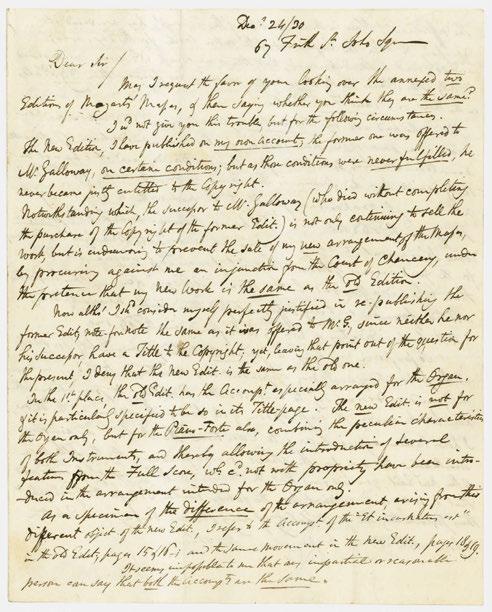 Decr 24/30
67 Frith St. Soho Sqre
Dear Sir/
May I request the favor of your looking over the annexed two
Edition of Mozart's Masses, & then saying whether you think they are the same?
I wd not give you this trouble, but for the following circumstances.
The New Edition, I have published on my own account; the former one was offered to
Mr. Galloway, on certain conditions; but as those conditions were never fulfilled, he
never became justly entitled to the Copyright.
Notwithstanding which, the successor to Mr. Galloway (who died without completing
the purchase of the Copyright of the former Edit:) is not only continuing to sell the
Work but is endeavouring to prevent the sale of my new arrangement of the Masses,
by procuring against me an injunction from the Court of Chancery, under
the pretence that my New Work is the same as the old Edition.
Now altho' I shd consider myself perfectly justified in re-publishing the
former Edit: note for note the same as it was offered to Mr G, since neither he nor
his successor have a Title to the Copyright; yet, leaving that point out of the question for
the present, I deny that the New Edit: is the same as the old one.
In the 1st place, the old Edit: has the Accompt especially arranged for the Organ,
& it is particularly specified to be so in its Title-page. The new Edit: is not for
the Organ only, but for the Piano-Forte also, combining the peculiar characteristics
of both Instruments, and thereby allowing the introduction of several
features from the Full Score, wh cd not with propriety have been intro-
duced in the arrangement intended for the Organ only.
As a specimen of the difference of the arrangement, arising from this
different object of the new Edit:, I refer to the Accompt of the "Et incarnatus est"
in the old Edit:, pages 15 & 16 - and the same movement in the new Edit:, pages 18 & 19.
It seems impossible to me that any impartial or reasonable
person can say that both the Accompts are the same.